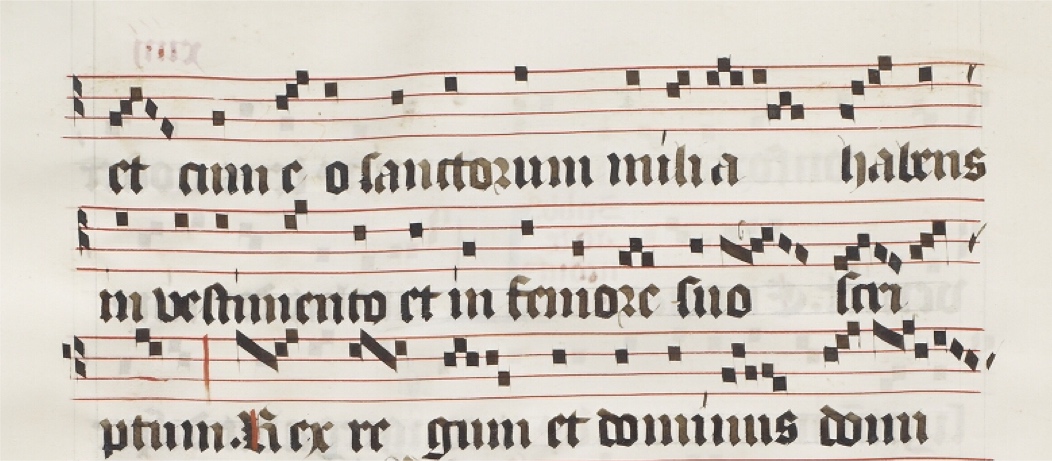 et cum e o sanctorum milia habens
in vestimento et in femore suo scri
ptum. Rex re gum et dominus domi